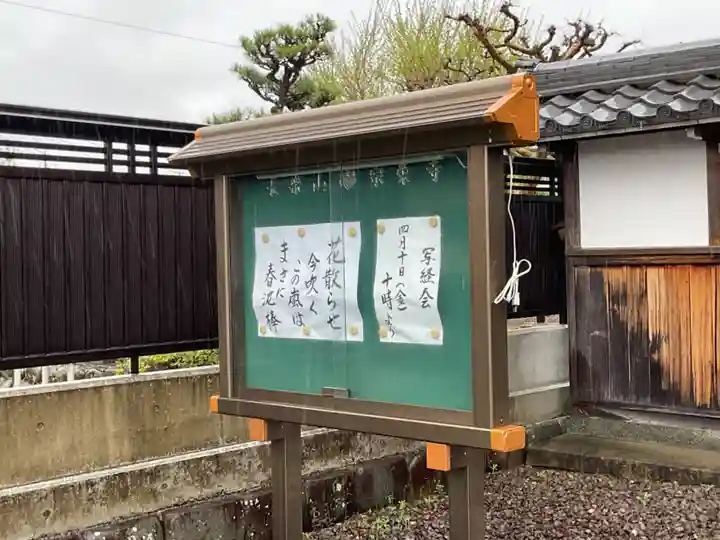 写経会
四月十日（金）
十時より
花散らせ
今吹く
この嵐は
まさに
春泥棒